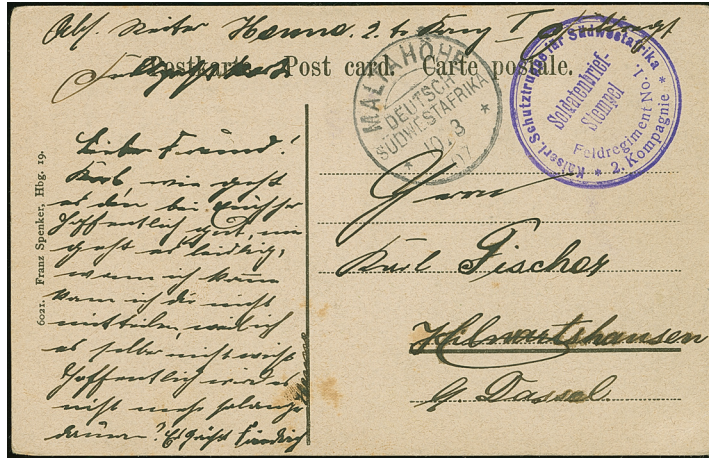 Abs. Reiter Henne. 2. Komp I Feldregt
Postkarte. Post card. Carte postale.
MALTAHÖHE
DEUTSCH-
SÜDWESTAFRIKA
* 10/3 *
07
Kaiserl. Schutztruppe für Südwestafrika
Soldatenbrief-
Stempel
Feldregiment No. 1.
* 2. Kompagnie *
6021. Franz Spenker, Hbg. 19.
Lieber Freund!
Karl, wie geht
es den bei
Hoffentlich gut, mir
geht es leidlich,
wann ich
kann ich dir nicht
mitteilen, weil ich
es selber nicht weiß
Hoffentlich wird es
nicht mehr solange
dauern! Es grüßt
Herrn
Karl Fischer
Hilwartshausen
b. Dassel.